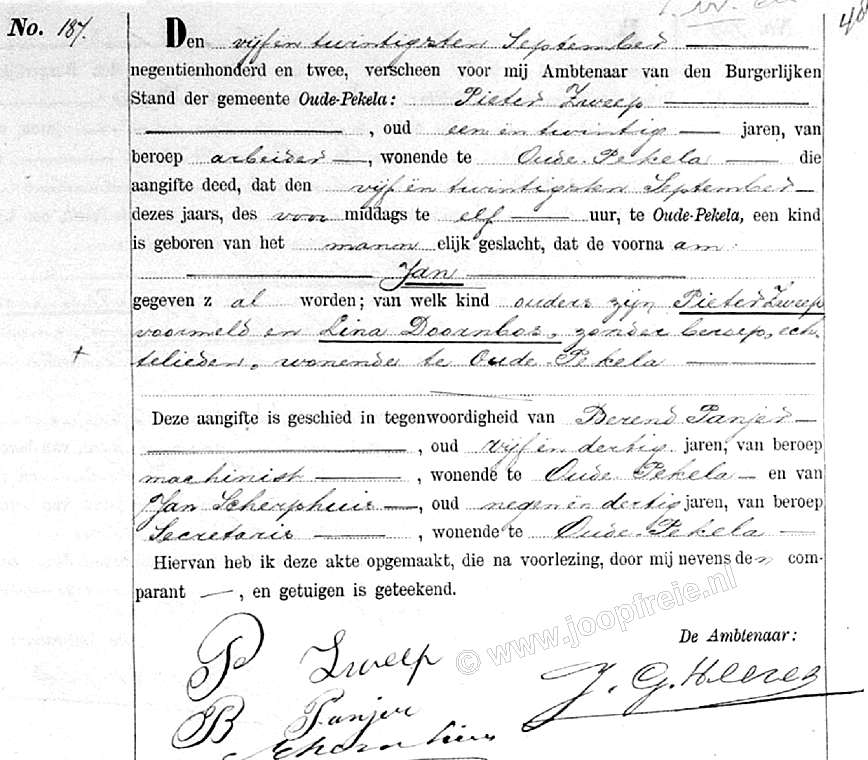 No. 187.
Den vijf en twintigsten September
negentienhonderd en twee, verscheen voor mij Ambtenaar van den Burgerlijken
Stand der gemeente Oude-Pekela: Pieter Zweep
, oud een en twintig jaren, van
beroep arbeider, wonende te Oude Pekela die
aangifte deed, dat den vijf en twintigsten September
dezes jaars, des voor middags te elf uur, te Oude-Pekela, een kind
is geboren van het mannelijk geslacht, dat de voornaam
Jan
gegeven zal worden; van welk kind ouders zijn Pieter Zweep
voormeld en Lina Doornbos, zonder beroep, ech-
telieden, wonende te Oude Pekela
Deze aangifte is geschied in tegenwoordigheid van Berend Panjer
, oud vijf en dertig jaren, van beroep
machinist, wonende te Oude Pekela en van
Jan Scherphuis, oud negen en dertig jaren, van beroep
Secretaris, wonende te Oude Pekela
Hiervan heb ik deze akte opgemaakt, die na voorlezing, door mij nevens den com-
parant, en getuigen is geteekend.
De Ambtenaar:
P Zweep
J. G. Heeres
B Panjer
© www.joopfreie.nl